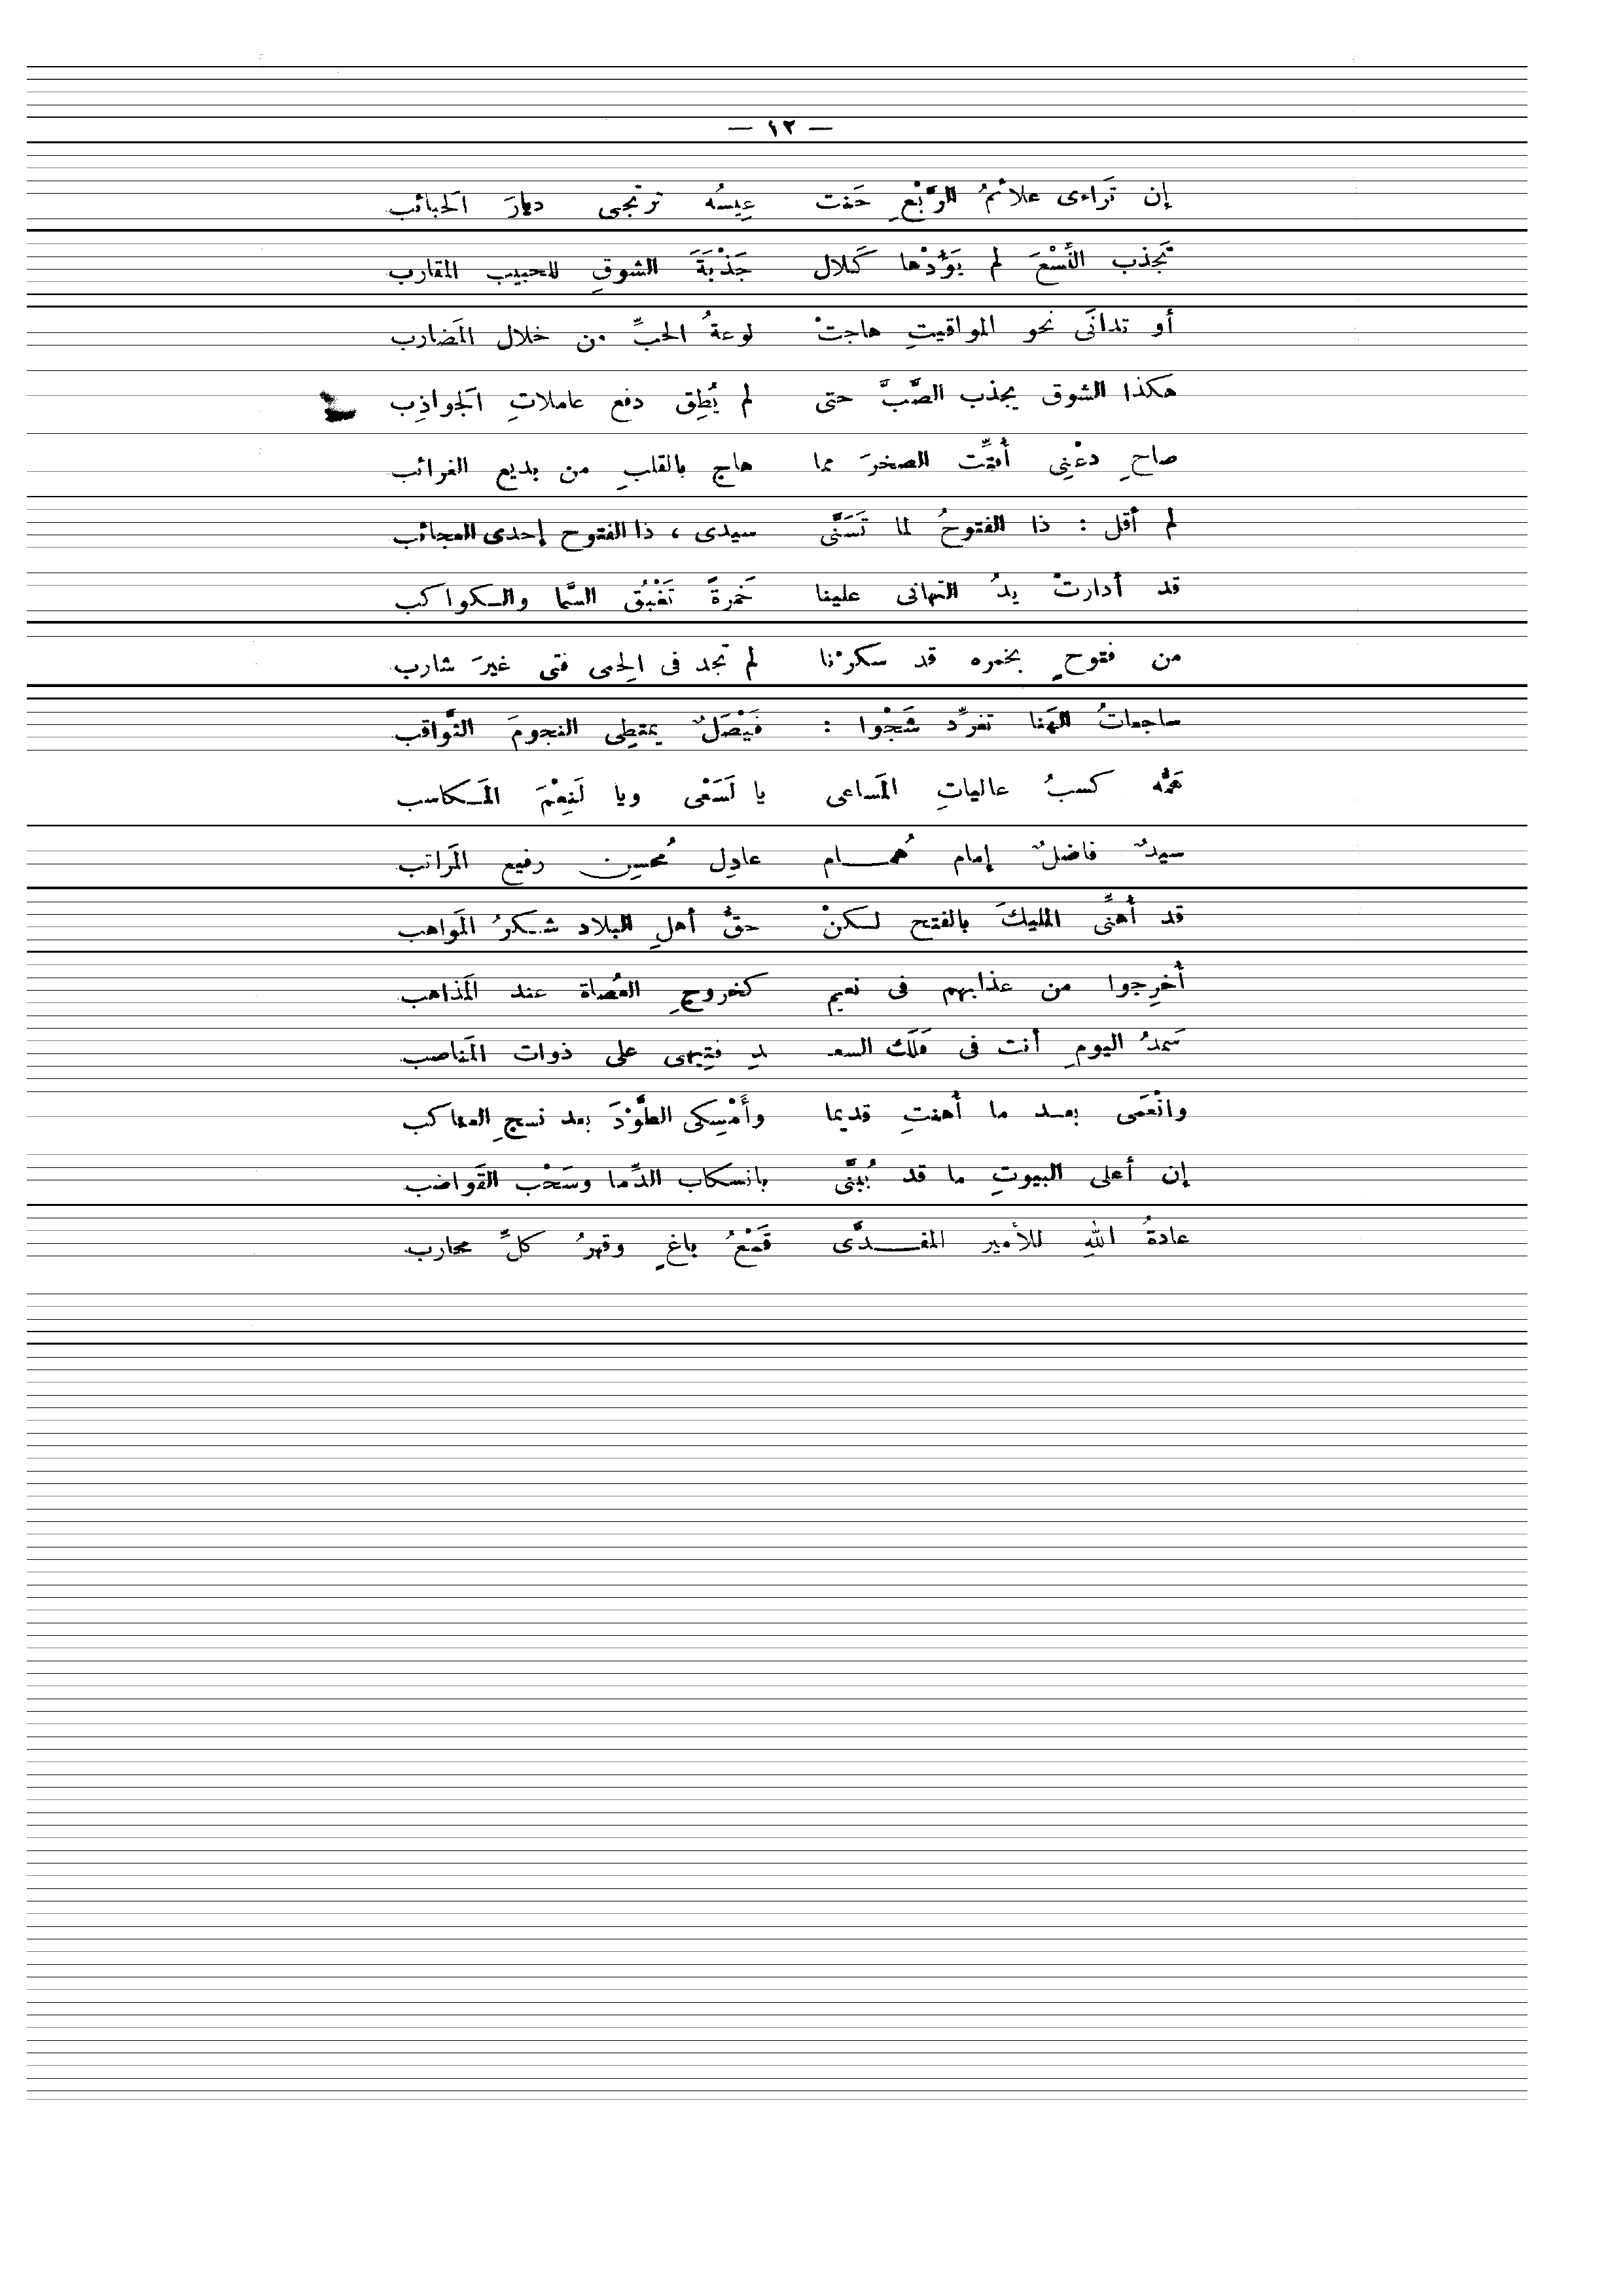 — ١٢ —
إن تَراءى علائمُ الرَّبْعِ حَنت عِيسُه ترتجى ديارَ الَحبائب
تَجذب النِّسْعَ لم يَؤُدْها كَلال جَذْبَةَ الشوقِ للحبيب المقارب
أو تدانَى نحو المواقيتِ هاجتْ لوعةُ الحبِّ من خلال المَضارب
هكذا الشوق يجذب الصَّبَّ حتى لم يُطِق دفع عاملاتِ الَجواذِب
صاحِ دعْنِى أُفتِّت الصخرَ مما هاج بالقلبِ من بديع الغرائب
لم أقل : ذا الفتوحُ لما تَسَنَّى سيدى ، ذا الفتوح إحدى العجائب
قد أدارتْ يدُ التهانى علينا خَمرةً تَغْبُق السَّما والكواكب
من فتوحٍ بخمره قد سكرْنا لم تجد فى الِحمى فتى غيرَ شارب
ساجعاتُ الهَنا تغرِّد شَجْوا : فَيْصَلٌ يمتطِى النجومَ الثَّواقب
هَمُّه كسبُ عالياتِ المَساعى يا لَسَعْى ويا لَنِعْمَ المَكاسب
سيدٌ فاضلٌ إمام هُمام عادِل مُحسِن رفيع المَراتب
قد أُهنَّى المليكَ بالفتح لكنْ حقُّ أهلِ البلاد شكرُ المَواهب
أُخرِجوا من عذابهم فى نعيم كخروجِ العُصاة عند المَذاهب
سَمدُ اليومِ أنت فى فَلَك السعـ ـدِ فتِيهى على ذوات المَناصب
وانْعَمى بعد ما أُهنتِ قديما وأَمْسِكى الطَّوْدَ بعد نسجِ العناكب
إن أعلى البيوتِ ما قد يُبَنَّى بانسكاب الدِّما وسَحْب القَواضب
عادةُ اللهِ للأمير المفدَّى قَمْعُ باغٍ وقهرُ كلِّ محارب